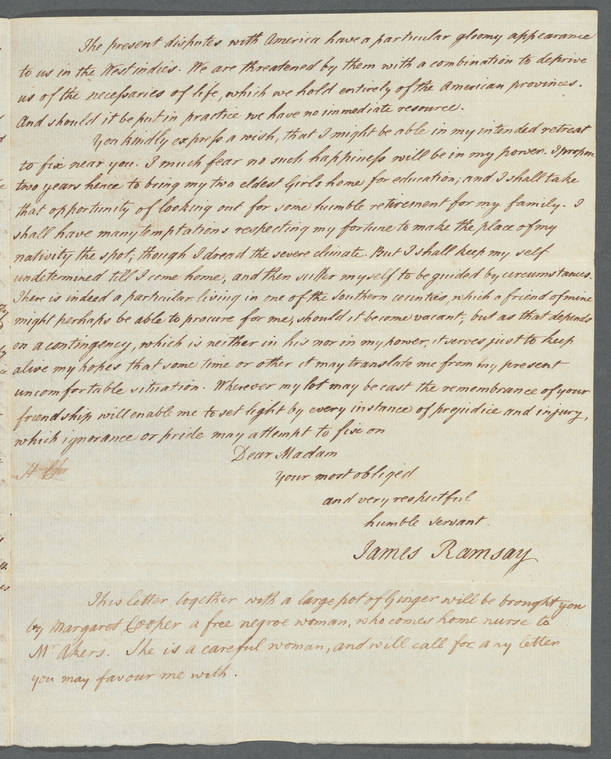 The present disputes with America have a particular gloomy appearance
to us in the West indies. We are threatened by them with a combination to deprive
us of the necessaries of life, which we hold entirely of the American provinces.
And should it be put in practice we have no immediate resource.
You kindly express a wish, that I might be able in my intended retreat
to fix near you. I much fear no such happiness will be in my power. I propose
two years hence to bring my two eldest Girls home for education; and I shall take
that opportunity of looking out for some humble retirement for my family. I
shall have many temptations respecting my fortune to make the place of my
nativity the spot, though I dread the severe climate. But I shall keep my self
undetermined till I come home, and then suffer myself to be guided by circumstances.
There is indeed a particular living in one of the Southern counties, which a friend of mine
might perhaps be able to procure for me, should it become vacant; but as that depends
on a contingency, which is neither in his nor in my power, it serves just to keep
alive my hopes that some time or other it may translate me from my present
uncomfortable situation. Wherever my lot may be cast the remembrance of your
friendship will enable me to set light by every instance of prejudice and injury,
which ignorance or pride may attempt to fix on
Dear Madam
your most obliged
and very respectful
humble servant
James Ramsay
This letter together with a large pot of Ginger will be brought you
by Margaret Cooper a free negroe woman, who comes home nurse to
Mr Akers. She is a careful woman, and will call for any letter
you may favour me with.